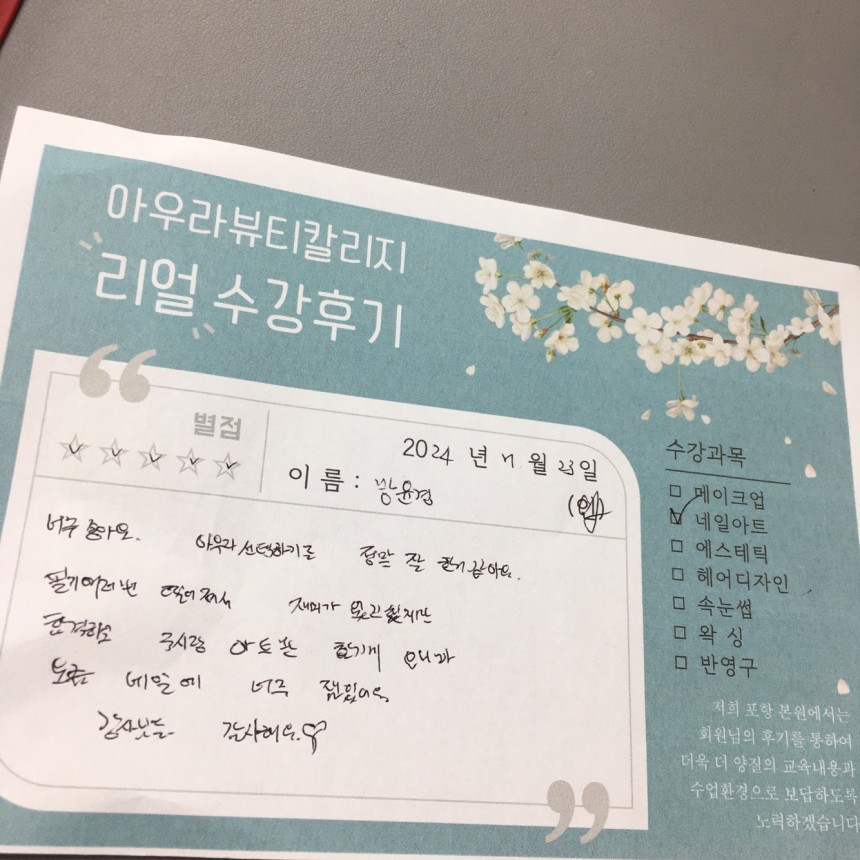 아우라뷰티칼리지
리얼 수강후기
별점
2024 년 11 월 23일
이 름 : 방윤경
너무 좋아요. 아우라 선택하기를 정말 잘 한거 같아요.
필기 여러 번 떨어져서 재미가 없고
합격하고 국시랑 아트를 즐기게 되니까
네일에 너무 재밌어요
강사님들 감사해요.♡
수강과목
□ 메이크업
□ 네일아트
□ 에스테틱
□ 헤어디자인
□ 속눈썹
□ 왁 싱
□ 반영구
저희 포항 본원에서는
회원님의 후기를 통하여
더욱 더 양질의 교육내용과
수업환경으로 보답하도록
노력하겠습니다